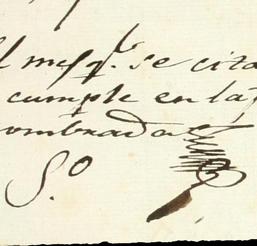 el mes q.e se cita
cumple en la
ombrada
S.o